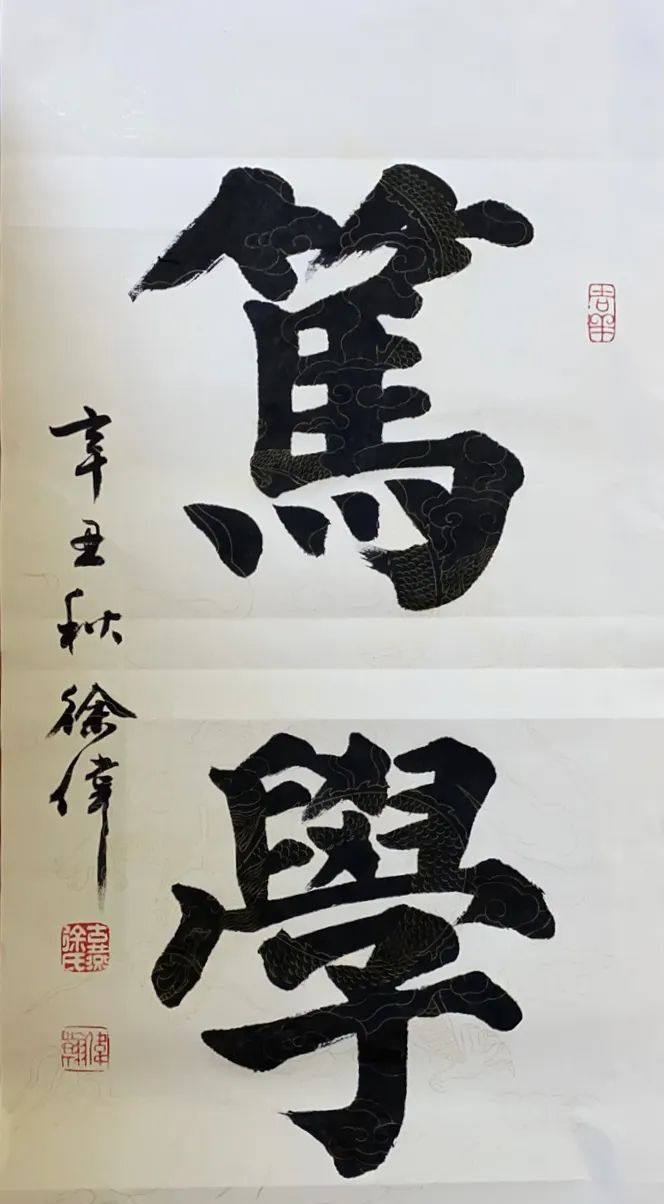 篤學
辛丑秋徐偉